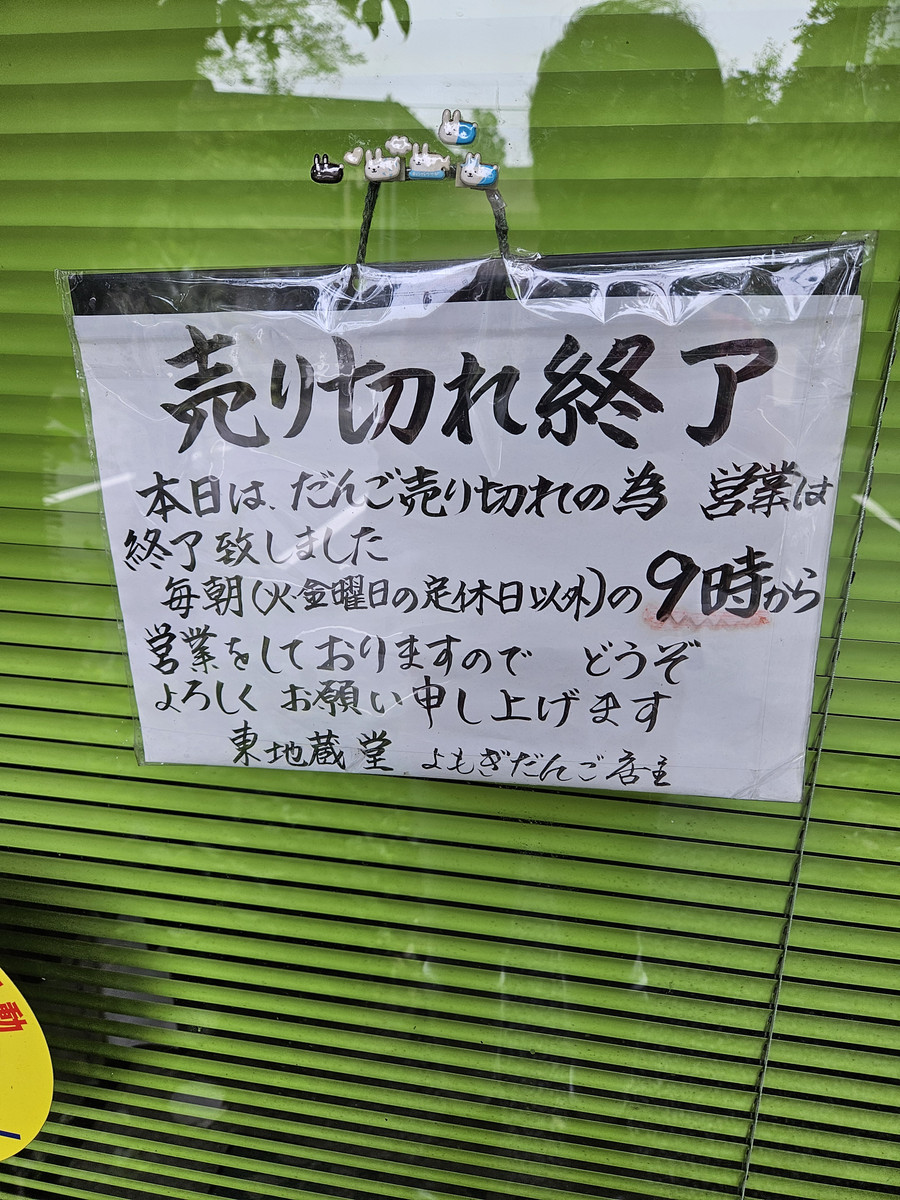 売り切れ終了
本日は、だんご売り切れの為 営業は
終了致しました
毎朝(火・金曜日の定休日以外)の9時から
営業をしておりますので どうぞ
よろしく お願い申し上げます
東地蔵堂 よもぎだんご店主
動